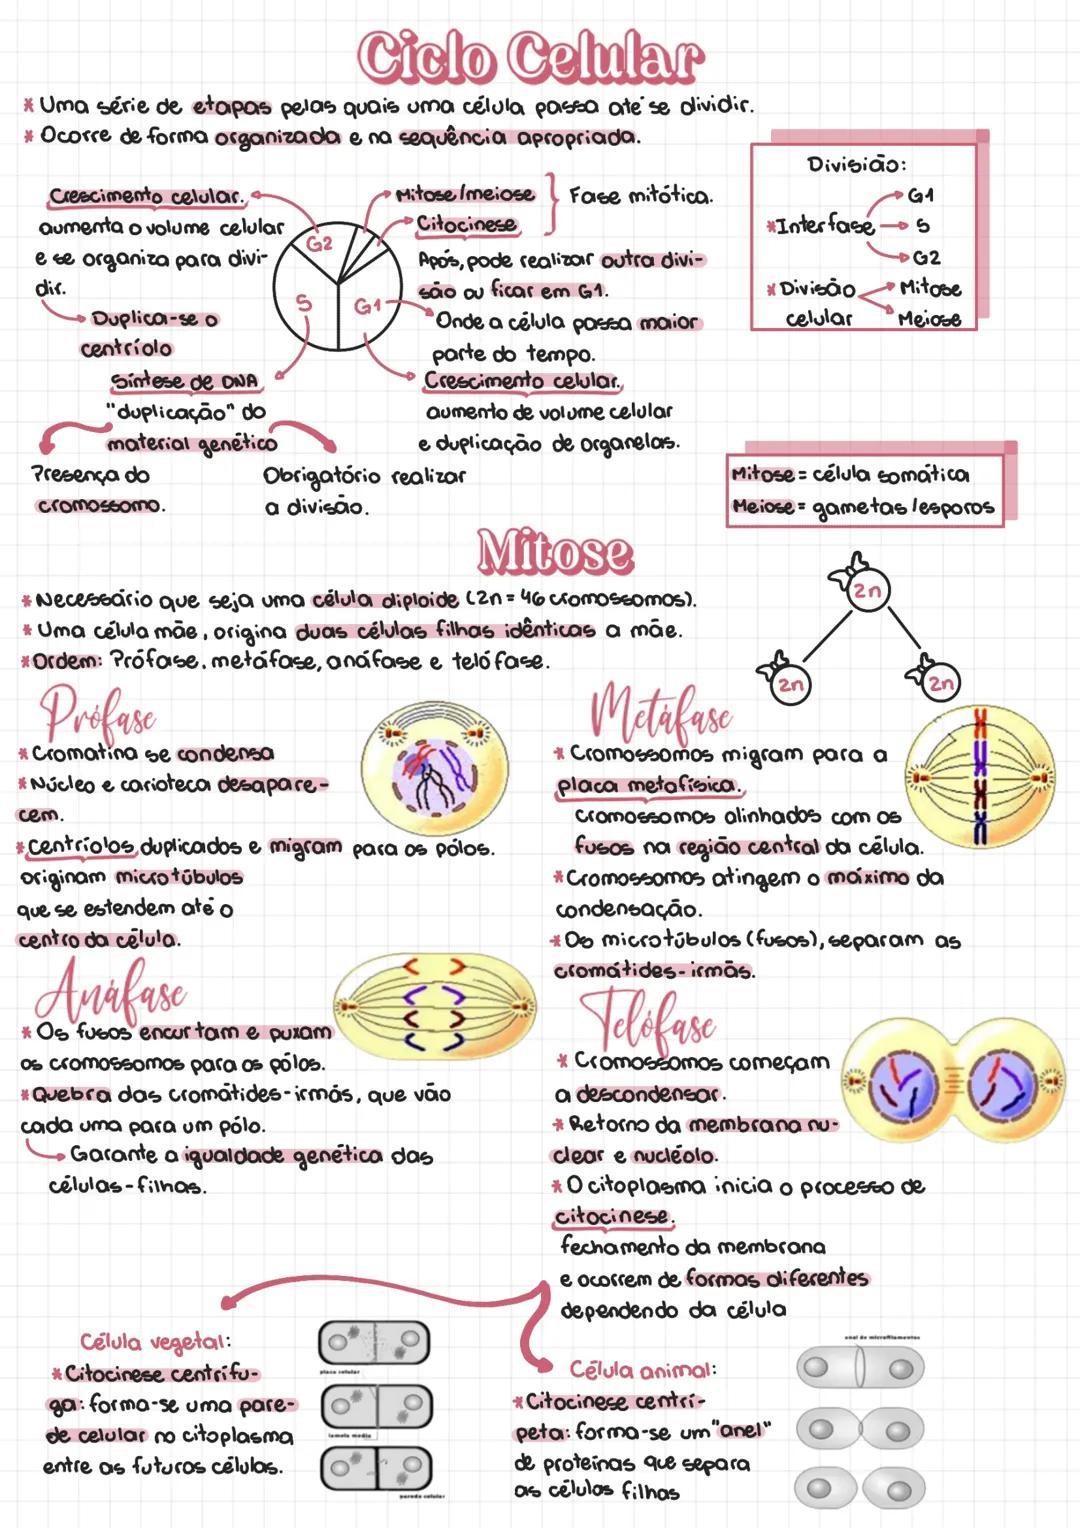 Ciclo Celular
* Uma série de etapas pelas quais uma célula passa até se dividir.
* Ocorre de forma organizada e na sequência apropriada.
Divisião:
*Interfase
G1
S
G2
*Divisão
celular
Mitose
Meiose
Crescimento celular.
aumenta o volume celular
e se organiza para divi-
dir.
Duplica-se o
centríolo
G2
S
G1
Mitose/meiose
Citocinese
Fase mitótica.
Após, pode realizar outra divi-
são ou ficar em G1.
Onde a célula passa maior
parte do tempo.
Crescimento celular.
aumento de volume celular
e duplicação de organelas.
Síntese de DNA
"duplicação" do
material genético
Presença do
cromossomo.
Obrigatório realizar
a divisão.
Mitose = célula somática
Meiose = gametas/esporos
Mitose
* Necessário que seja uma célula diploide (2n = 46 cromossomos).
* Uma célula mãe, origina duas células filhas idênticas a mãe.
*Ordem: Prófase, metáfase, anáfase e telófase.
2n
2n
2n
Prófase
* Cromatina se condensa
*Núcleo e carioteca desapare-
cem.
*Centríolos duplicados e migram para os pólos.
originam microtúbulos
que se estendem até o
centro da célula.
Metáfase
* Cromossomos migram para a
placa metafísica.
cromossomos alinhados com os
fusos na região central da célula.
*Cromossomos atingem o máximo da
condensação.
*Os microtúbulos (fusos), separam as
cromátides-irmãs.
Anáfase
* Os fusos encurtam e puxam
os cromossomos para os pólos.
*Quebra das cromátides-irmãs, que vão
cada uma para um pólo.
Garante a igualdade genética das
células-filhas.
Telófase
* Cromossomos começam
a descondensar.
* Retorno da membrana nu-
clear e nucléolo.
*O citoplasma inicia o processo de
citocinese.
fechamento da membrana
e ocorrem de formas diferentes
dependendo da célula
Célula vegetal:
*Citocinese centrífu-
ga: forma-se uma pare-
de celular no citoplasma
entre as futuras células.
placa celular
lamela media
parede celular
Célula animal:
*Citocinese centrí-
peta: forma-se um "anel"
de proteínas que separa
as células filhas
anel de microfilamentos